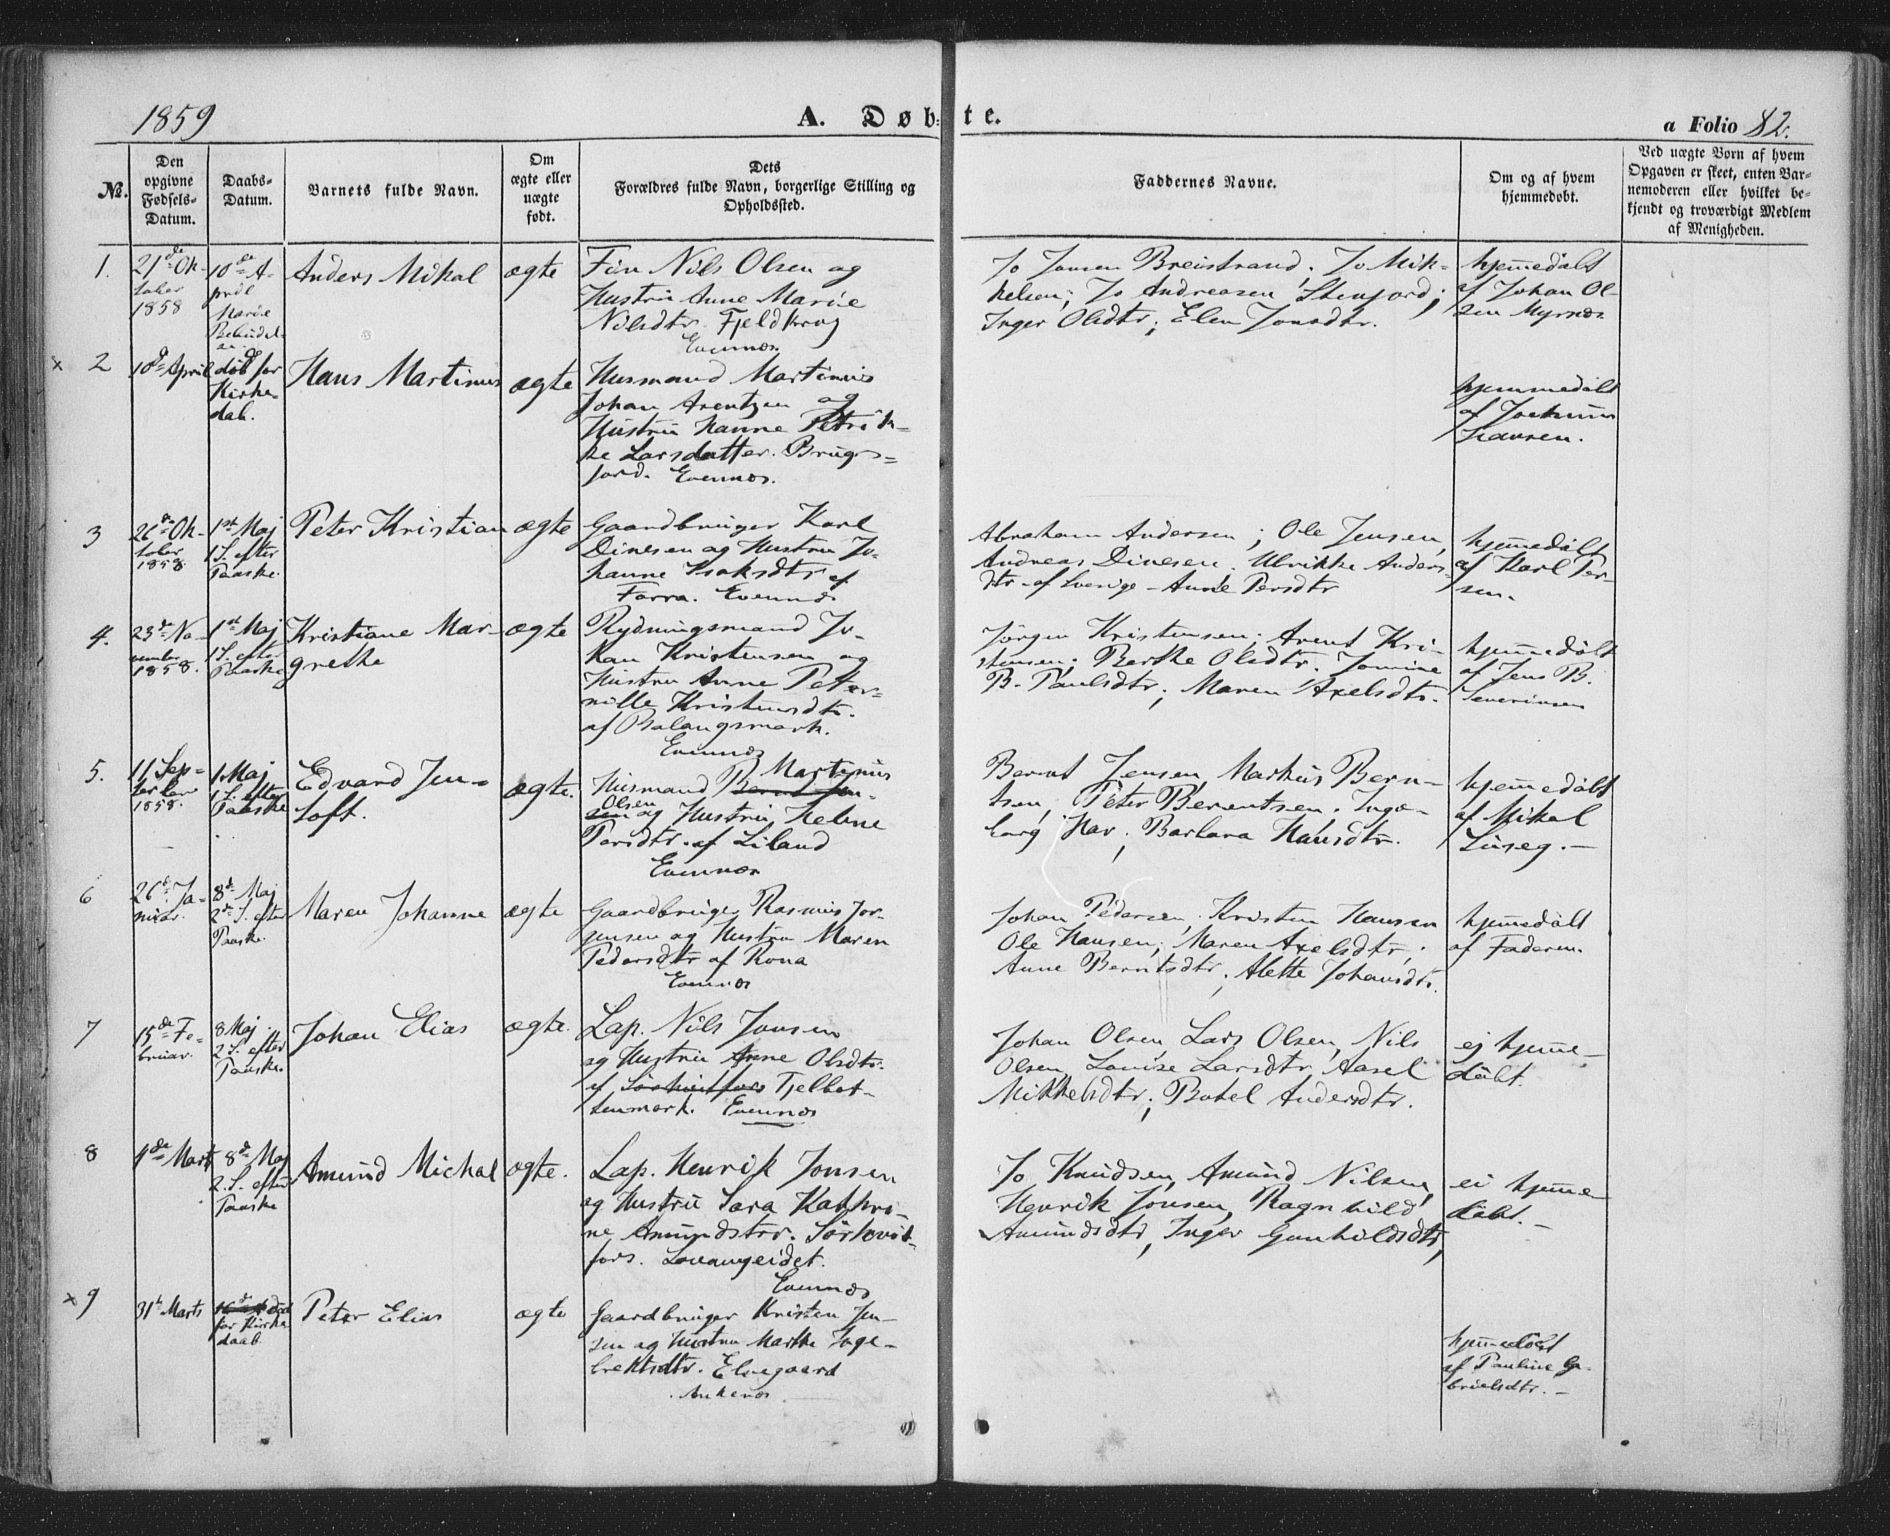 1859
A. Døbte.
a Folio 82.
No.
Den opgivne Fødsels-Datum.
Daabs-Datum.
Barnets fulde Navn.
Om ægte eller uægte født.
Dets Forældres fulde Navn, borgerlige Stilling og Opholdssted.
Faddernes Navne.
Om og af hvem hjemmedøbt.
Ved uægte Børn af hvem Opgaven er skeet, enten Barnemoderen eller hvilket bekjendt og troværdigt Medlem af Menigheden.
1.
21de Ok-
tober
1858
10de A-
pril
Mariæ
Bebudel-
se
Anders Mikal
ægte
Fin Nils Olsen og
Hustru Anne Marie
Nilsdtr. Fjeldkrog
Evennæs
Jo Jonsen Breistrand; Jo Mik-
kelsen; Jo Andreasen Stenjord;
Inger Olsdtr; Elen Jonsdtr.
hjemmedøbt
af Johan Ol-
sen Myrnæs
x 2
10de April
død før
Kirke-
dab.
Hans Martinus
ægte
Husmand Martinus
Johan Arentzen og
Hustru Hanne Petrik-
ke Larsdatter. Bruges-
jord. Evennæs.
hjemmedøbt
af Jochum
Hansen.
3
26de Ok-
tober
1858
1st Maj
1 S. efter
Paaske.
Peter Kristian
ægte
Gaardbruger Karl
Dinesen og Hustru Jo-
hanne Isaksdtr af
Forra. Evennæs
Abraham Andersen; Ole Jensen,
Andreas Dinesen. Ulrikke Anders-
dtr af Sverige - Anne Persdtr
hjemmedøbt
af Karl Per-
sen.
4.
23de No-
vember
1858.
1st Maj
1 S. efter
Paaske
Kristiane Mar-
grethe
ægte
Rydningsmand Jo-
han Kristensen og
Hustru Anne Peter-
nille Kristensdtr.
af Balangsmark.
Evennæs
Jørgen Kristensen; Arent Kri-
stensen; Berthe Olsdtr. Jonnine
B. Paulsdtr; Maren Axelsdtr.
hjemmedøbt
af Jens B.
Severinsen
5.
11 Sep-
tember
1858.
1 Maj
1 S. efter
Paaske
Edvard Jen-
toft.
ægte.
Husmand Bernt Jen- Martinus
sen Olsen og Hustru Helene
Persdtr. af Liland
Evennæs
Bernt Jensen, Markus Bern-
tsen, Peter Berentsen. Inge-
borg Hav; Barbara Hansdtr.
hjemmedøbt
af Mikal
6
26de Ja-
nuar.
8de Maj
2den S. efter
Paaske.
Maren Johanne
ægte
Gaardbruger Rasmus Jør-
gensen og Hustru Maren
Pedersdtr af Kona
Evennæs
Johan Pedersen, Kristen Hansen
Ole Hansen; Maren Axelsdtr;
Anne Berntsdtr, Alette Johansdtr.
hjemmedøbt
af Faderen.
7
15de Fe-
bruar.
8 Maj
2 S. efter
Paaske
Johan Elias
ægte.
Lap. Nils Jonsen
og Hustru Anne Olsdtr.
af Tjelbot-
tenmark. Evennæs
Johan Olsen, Lars Olsen, Nils
Olsen, Lovise Larsdtr, Aasel
Mikkelsdtr; Botel Andersdtr.
ej hjemme-
døbt.
8
4de Marts
8de Maj
2. S. efter
Paaske
Amund Michal
ægte.
Lap. Henrik Jonsen
og Hustru Sara Kathri-
ne Amundsdtr. Sørkvit-
fors. Lavangeidet.
Evennæs
Jo Knudsen, Amund Nilsen,
Henrik Jonsen, Ragnhild
Amundsdtr, Inger Gunhildsdtr,
ei hjemme-
døbt.
x 9
31te Marts
død
før Kirke-
daab
Peter Elias
ægte
Gaardbruger Kristen Jen-
sen og Hustru Marthe Inge-
brektsdtr. Elvegaard
Ankenæs
hjemmedøbt
af Pauline Ga-
brielsdtr.